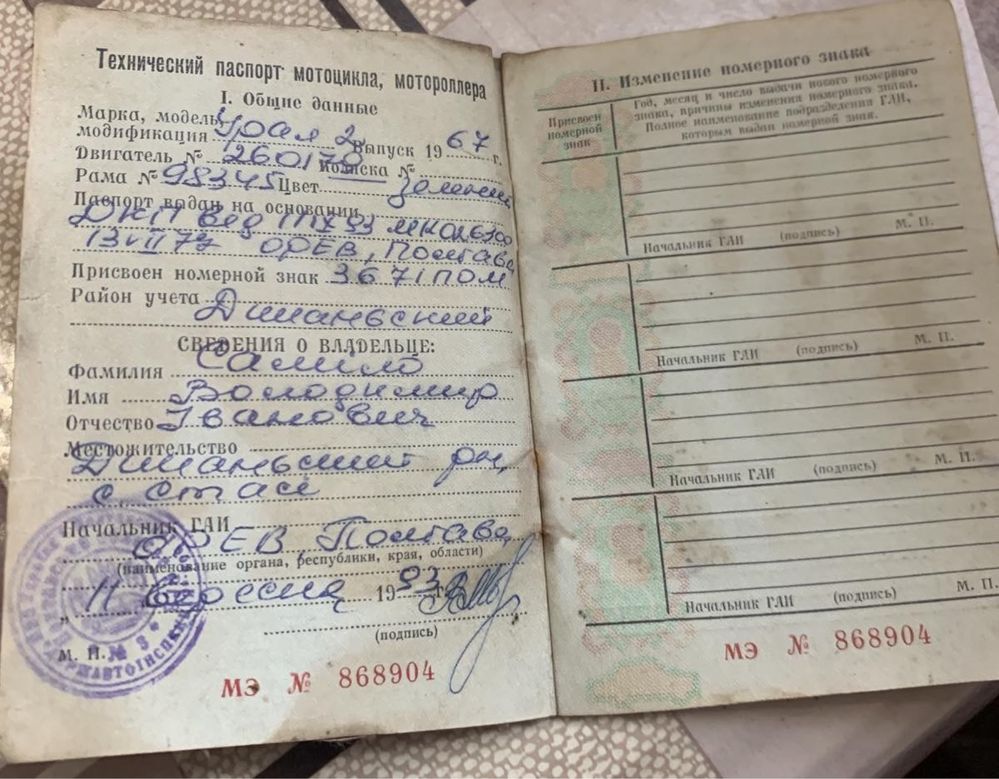 Технический паспорт мотоцикла, мотороллера
I. Общие данные
Марка, модель,
модификация Урал 2 Выпуск 1967 г.
Двигатель № 260170 Коляска №
Рама № 98345 Цвет зелений
Паспорт выдан на основании
ДКП вед
ОРЕВ, Полтава
Присвоен номерной знак 3671ПОМ
Район учета Диканьский
СВЕДЕНИЯ О ВЛАДЕЛЬЦЕ:
Фамилия Саміло
Имя Володимир
Отчество Іванович
Местожительство
Диканьский рн,
с. Стасі
Начальник ГАИ
ОРЕВ Полтава
(наименование органа, республики, края, области)
„ 11 1993 г.
(подпись)
М. П.
№ 3
МЭ № 868904
II. Изменение номерного знака
Присвоен
номерной
знак
Год, месяц и число выдачи нового номерного
знака, причины изменения номерного знака.
Полное наименование подразделения ГАИ,
которым выдан номерной знак.
Начальник ГАИ (подпись) М. П.
Начальник ГАИ (подпись) М. П.
Начальник ГАИ (подпись) М. П.
Начальник ГАИ (подпись) М. П.
МЭ № 868904